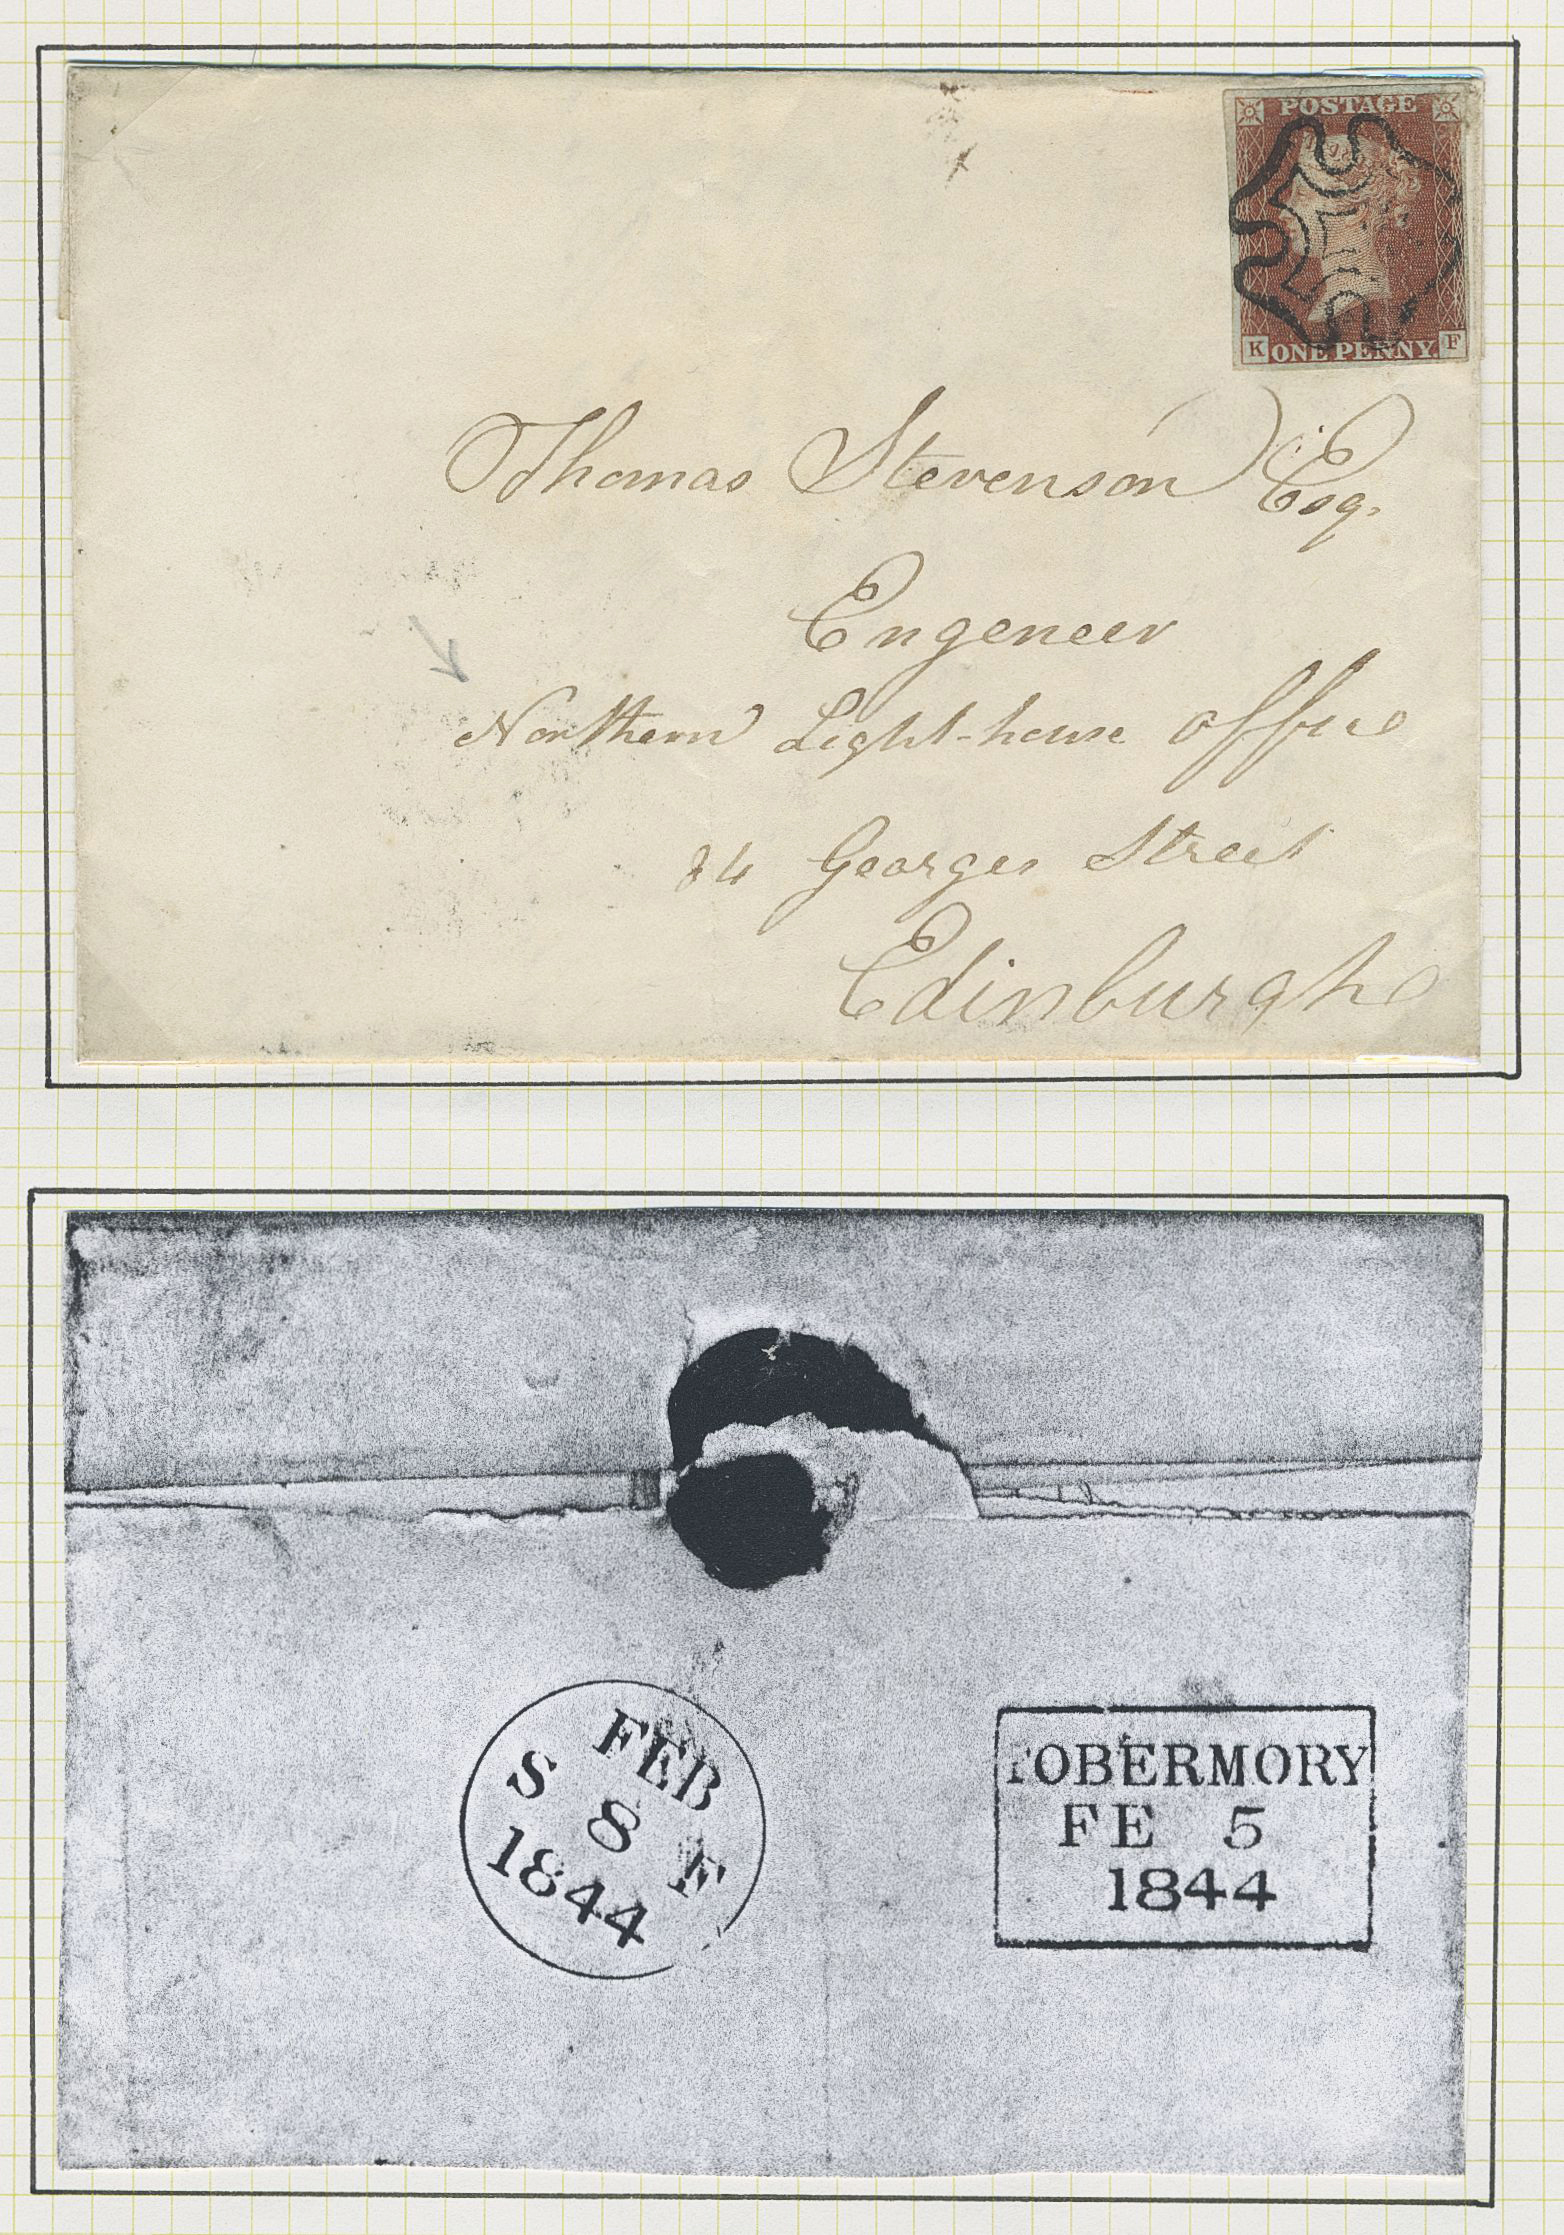 POSTAGE
K ONE PENNY. F
Thomas Stevenson Esq.
Engeneer
Northern Light-house Office
84 Georges Street
Edinburgh
FEB
S 8 F
1844
TOBERMORY
FE 5
1844